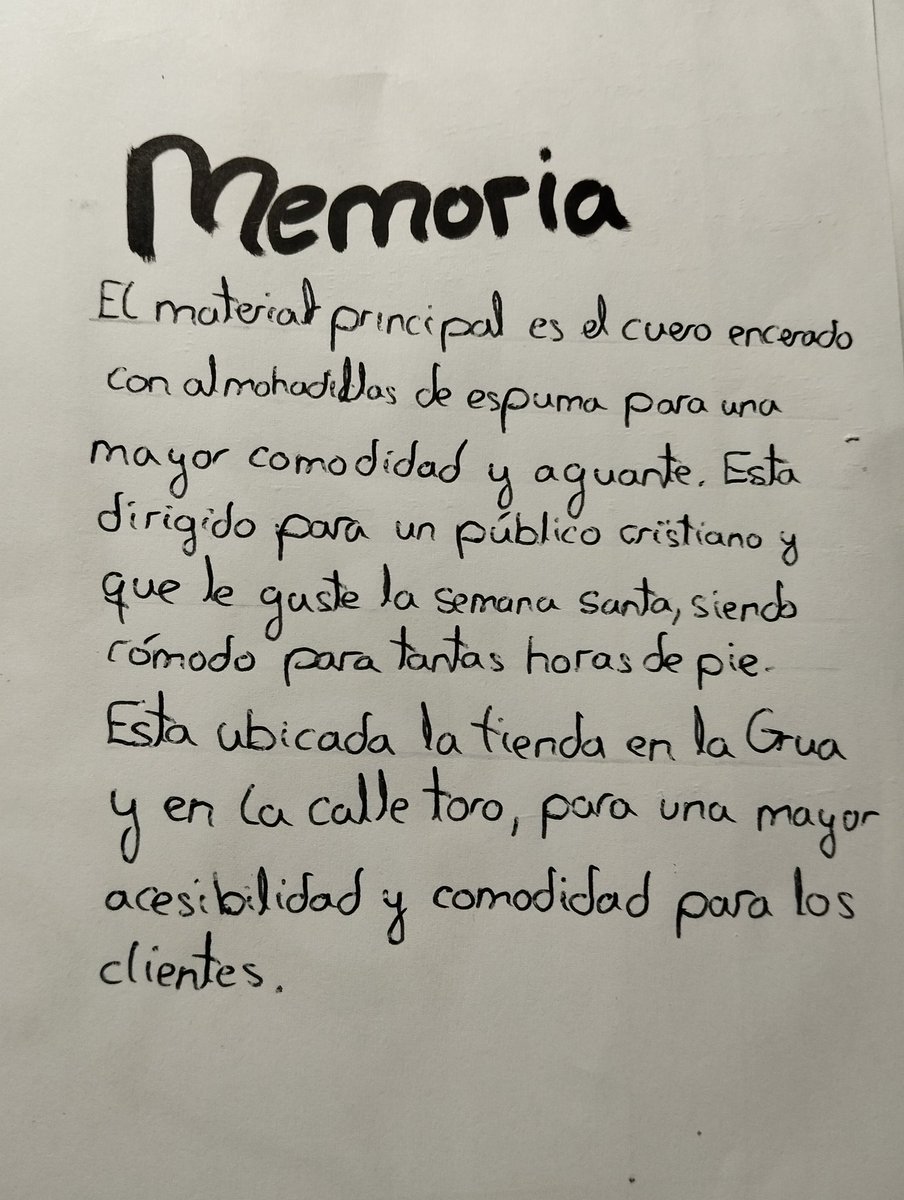 Memoria
El material principal es el cuero encerado
con almohadillas de espuma para una
mayor comodidad y aguante. Esta
dirigido para un público cristiano y
que le guste la semana santa, siendo
cómodo para tantas horas de pie.
Esta ubicada la tienda en la Grua
y en la calle toro, para una mayor
acesibilidad y comodidad para los
clientes.